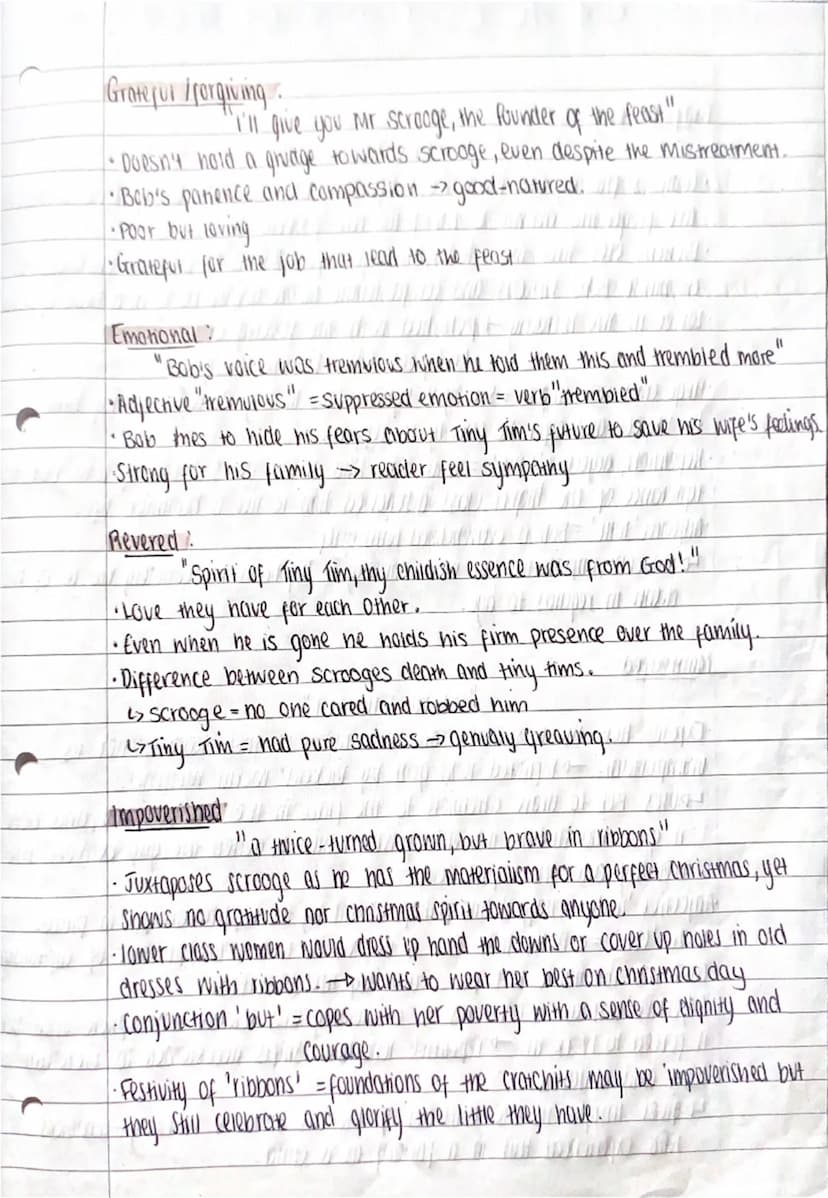 Grateful / forgiving :
"I'll give you Mr Scrooge, the founder of the feast"
• Doesn't hold a grudge towards scrooge, even despite the mistreatment.
• Bob's patience and compassion → good-natured.
• Poor but loving
• Grateful for the job that lead to the feast
Emotional :
"Bob's voice was tremulous when he told them this and trembled more"
• Adjective "tremulous" = suppressed emotion = verb "trembled"
• Bob tries to hide his fears about Tiny Tim's future to save his wife's feelings.
• Strong for his family → reader feel sympathy
Revered :
"Spirit of Tiny Tim, thy childish essence was from God!"
• Love they have for each other.
• Even when he is gone he holds his firm presence over the family.
• Difference between scrooges death and tiny tims.
↳ scrooge = no one cared and robbed him
↳ Tiny Tim = had pure sadness → genually greaving.
Impoverished
"a twice-turned grown, but brave in ribbons"
• Juxtaposes scrooge as he has the materialism for a perfect christmas, yet
shows no gratitude nor christmas spirit towards anyone.
• lower class women would dress up hand the downs or cover up holes in old
dresses with ribbons. → wants to wear her best on christmas day
• conjunction 'but' = copes with her poverty with a sense of dignity and
courage.
• Festivity of 'ribbons' = foundations of the cratchits may be impoverished but
they still celebrate and glorify the little they have.